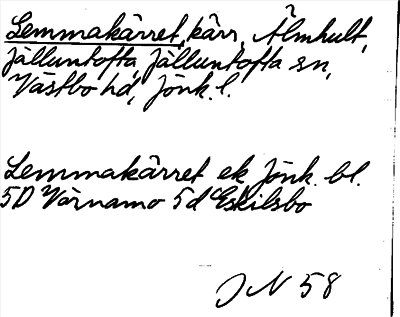 Lemmakärret, kärr, Älmhult,
Jälluntofta, Jälluntofta sn,
Västbo hd, Jönk. l.
Lemmakärret ek Jönk. bl.
5D Värnamo 5d Eskilsbo
JN 58